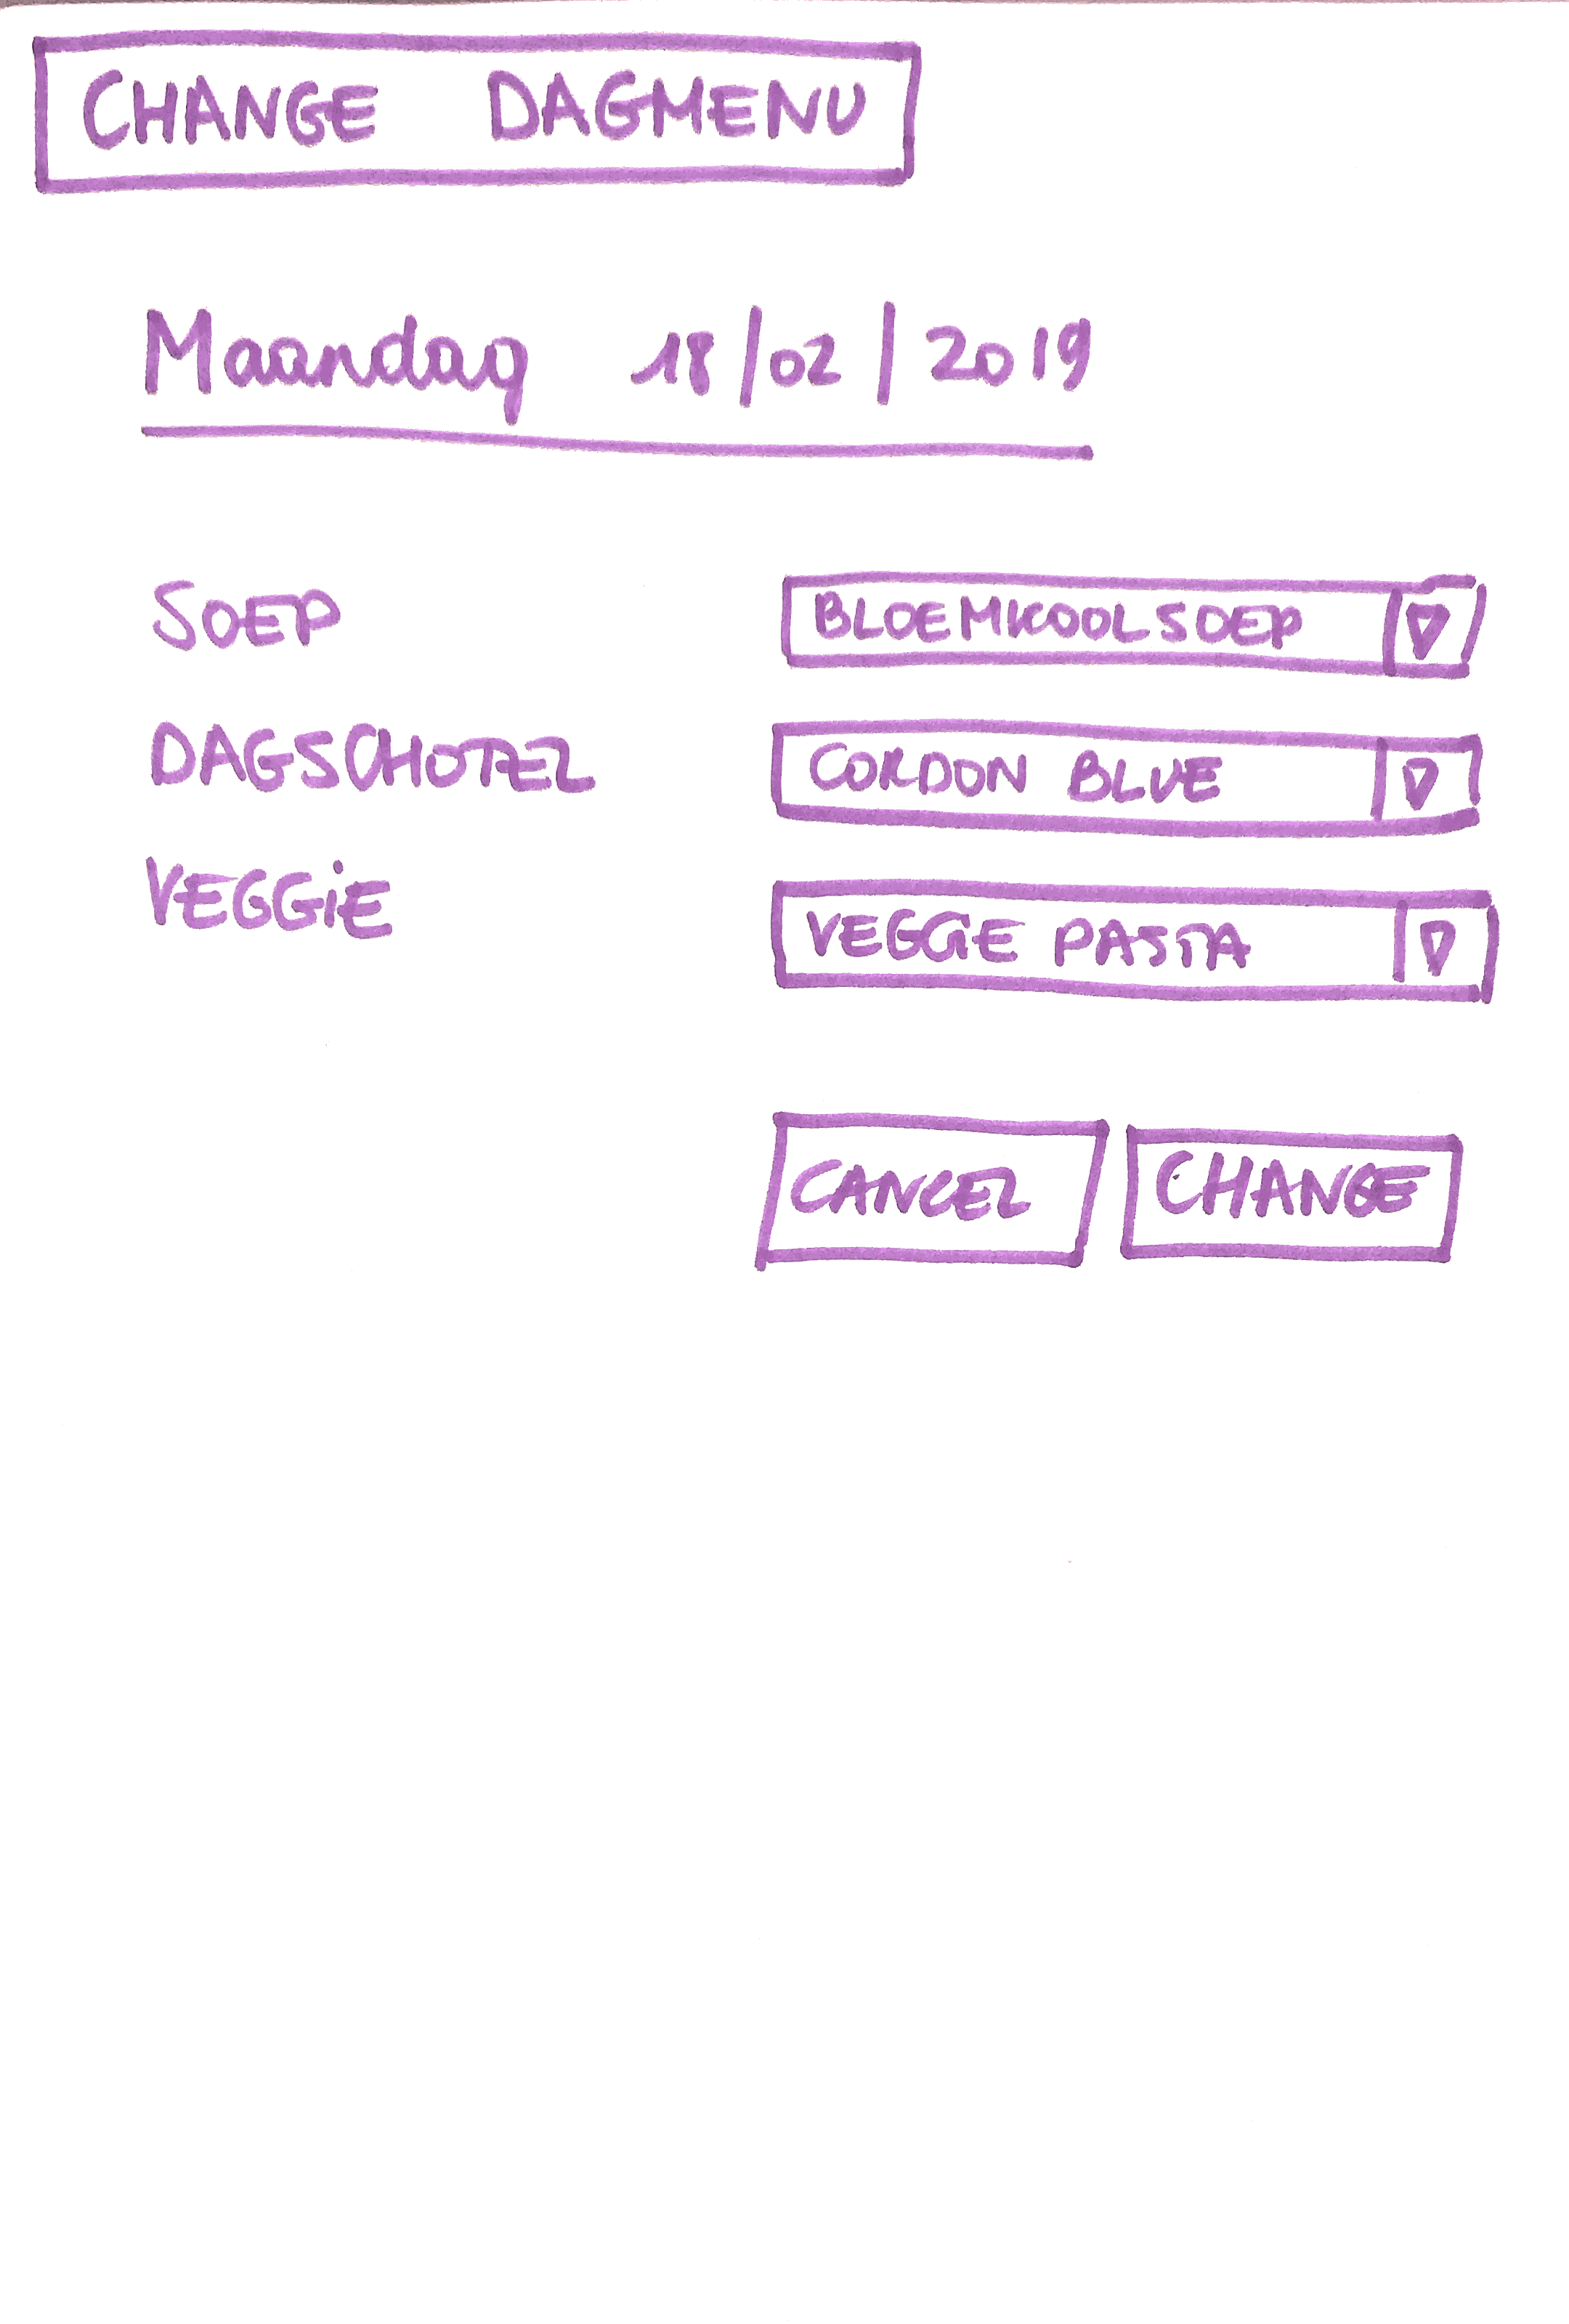 CHANGE DAGMENU
Maandag 18/02/2019
SOEP BLOEMKOOLSOEP
DAGSCHOTEL CORDON BLUE
VEGGiE VEGGiE PASTA
CANCEL CHANGE